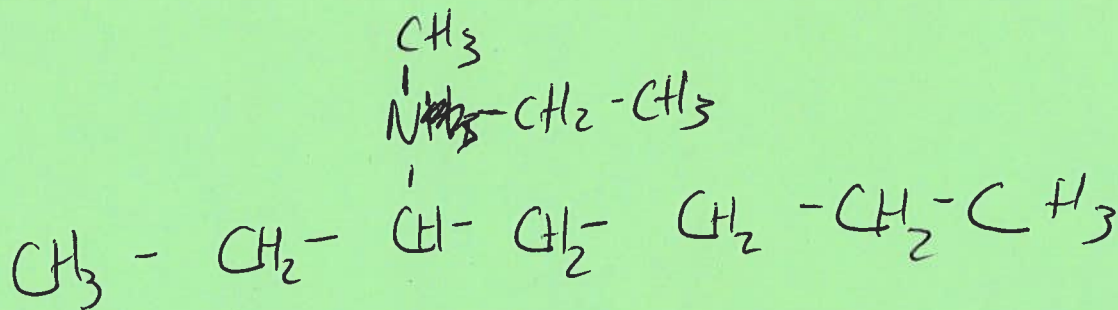 CH₃
N-CH₂-CH₃
CH₃-CH₂-CH-CH₂-CH₂-CH₂-CH₃